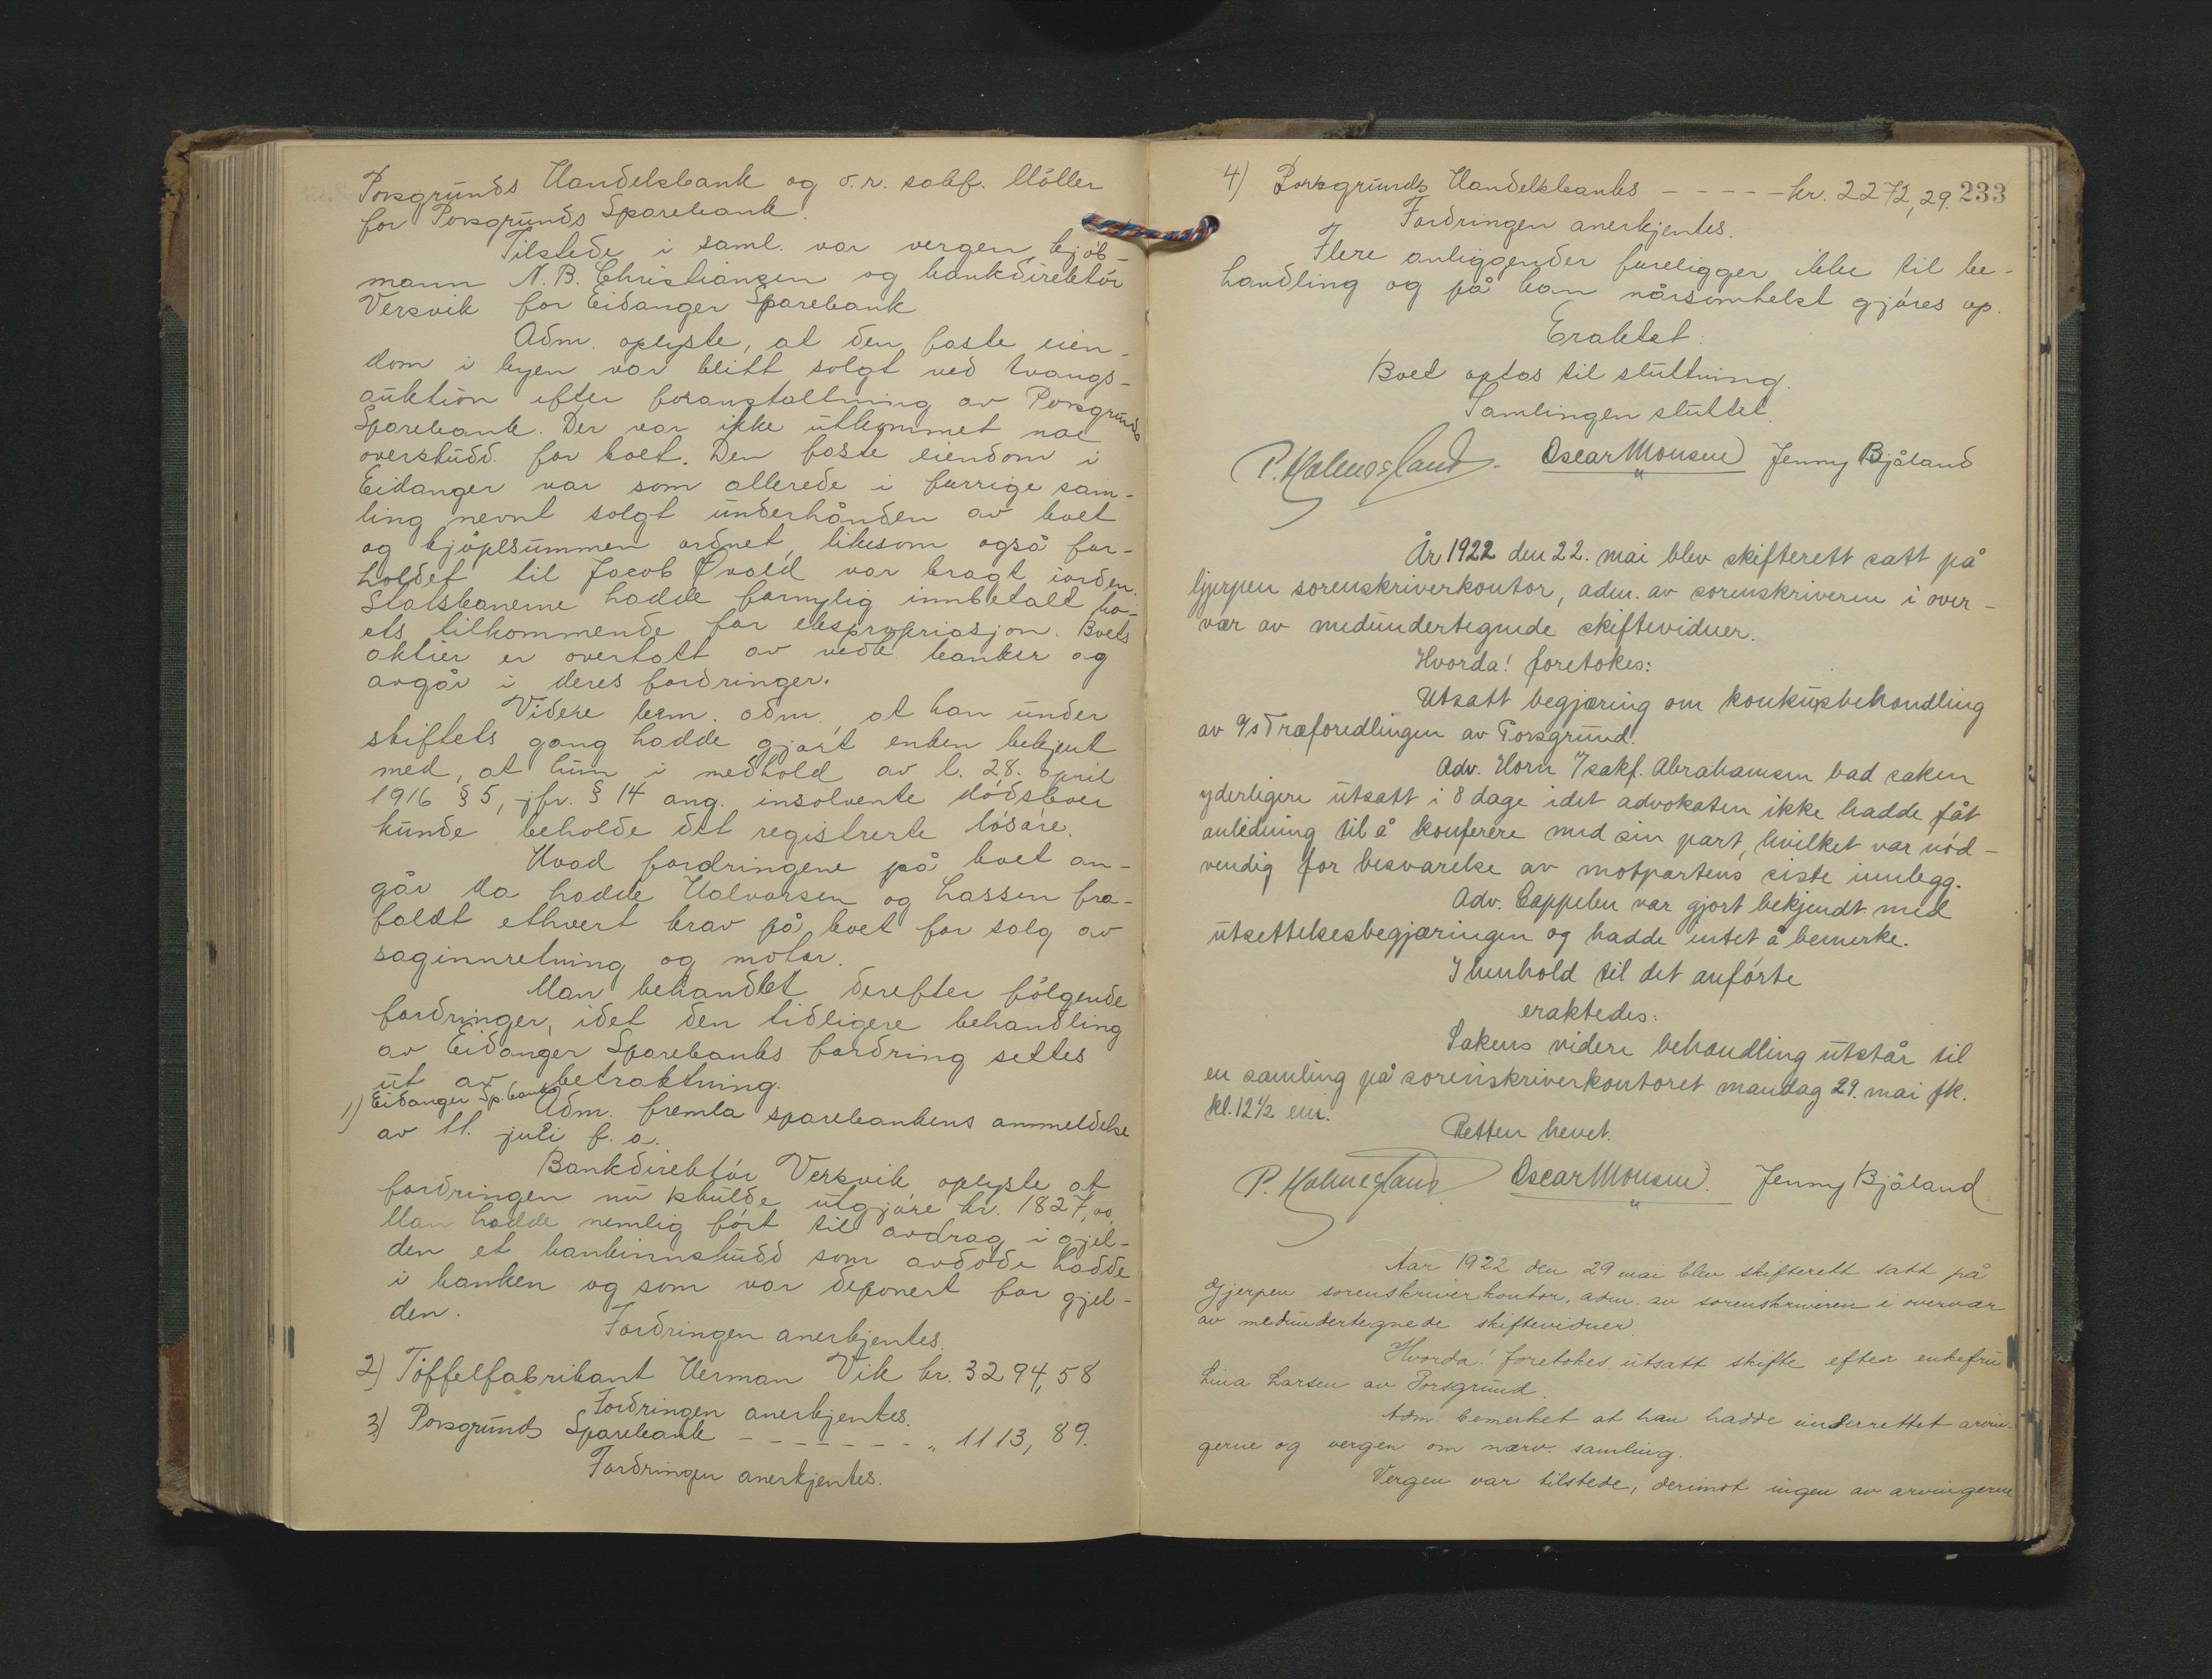 Porsgrunds Handelsbank og o.r. sakf. Möller
for Porsgrunds Sparebank.
Tilstede i saml. var vergen, kjöb-
mann N. B. Christiansen og bankdirektör
Versvik for Eidanger Sparebank
Adm. oplyste, at den faste eien-
dom i byen var blitt solgt ved tvangs-
auktion efter foranstaltning av Porsgrunds
Sparebank. Der var ikke utkommet noe
overskudd for boet. Den faste eiendom i
Eidanger var som allerede i forrige sam-
ling nevnt solgt underhånden av boet
og kjöpesummen ordnet, likesom også for-
holdet til Jacob Øvald var bragt iorden.
Statsbanerne hadde formylig innbetalt bo-
ets tilkommende for ekspropriasjon. Boets
aktier er overtatt av vedk. banker og
avgår i deres fordringer.
Videre bem. adm. at han under
skiftets gang hadde gjort enken bekjent
med, at hun i medhold av l. 28. april
1916 § 5, jfr. § 14 ang. insolvente dödsboer
kunde beholde det registrerte lösöre.
Hvad fordringene på boet an-
går da hadde Halvorsen og Lassen fra-
faldt ethvert krav på boet for salg av
saginnretning og motor.
Man behandlet derefter fölgende
fordringer, idet den tidligere behandling
av Eidanger Sparebanks fordring settes
ut av betraktning.
1) Eidanger Sp.bank Adm. fremla sparebankens anmeldelse
av 11. juli f. a.
Bankdirektör Versvik oplyste at
fordringen nu skulde utgjöre kr. 1827,00.
Man hadde nemlig fört til avdrag i gjel-
den et bankinnskudd som avdöde hadde
i banken og som var deponert for gjel-
den.
Fordringen anerkjentes.
2) Töffelfabrikant Herman Vik kr. 3294,58
Fordringen anerkjentes.
3) Porsgrunds Sparebank - - - - - - - „ 1113,89.
Fordringen anerkjentes.
4) Porsgrunds Handelsbanks - - - - - kr. 2272,29. 233
Fordringen anerkjentes.
Flere anliggender foreligger ikke til be-
handling og på kan nårsomhelst gjöres op.
Eraktet:
Boet optas til sluttning.
Samlingen sluttet.
P. Holmesland. Oscar Monsen Jenny Bjåland
År 1922 den 22. mai blev skifterett satt på
Gjerpen sorenskriverkontor, adm. av sorenskriveren i over-
vær av medundertegnede skiftevidner.
Hvorda! foretokes:
Utsatt begjæring om konkursbehandling
av A/s Træforedlingen av Porsgrund.
Adv. Horn v/ sakf. Abrahamsen bad saken
yderligere utsatt i 8 dage idet advokaten ikke hadde fåt
anledning til å konferere med sin part, hvilket var nöd-
vendig for besvarelse av motpartens siste innlegg.
Adv. Cappelen var gjort bekjendt med
utsettelsesbegjæringen og hadde intet å bemerke.
I henhold til det anförte
eraktedes:
Sakens videre behandling utstår til
en samling på sorenskriverkontoret mandag 29. mai fk.
kl. 12½ em.
Retten hevet.
P. Holmesland Oscar Monsen. Jenny Bjåland
Aar 1922 den 29 mai blev skifterett satt på
Gjerpen sorenskriverkontor, adm. av sorenskriveren i overvær
av medundertegnede skiftevidner.
Hvorda! foretokes utsatt skifte efter enkefru
Lina Larsen av Porsgrund.
Adm. bemerket at han hadde underrettet arvin-
gerne og vergen om nærv. samling.
Vergen var tilstede, derimot ingen av arvingerne